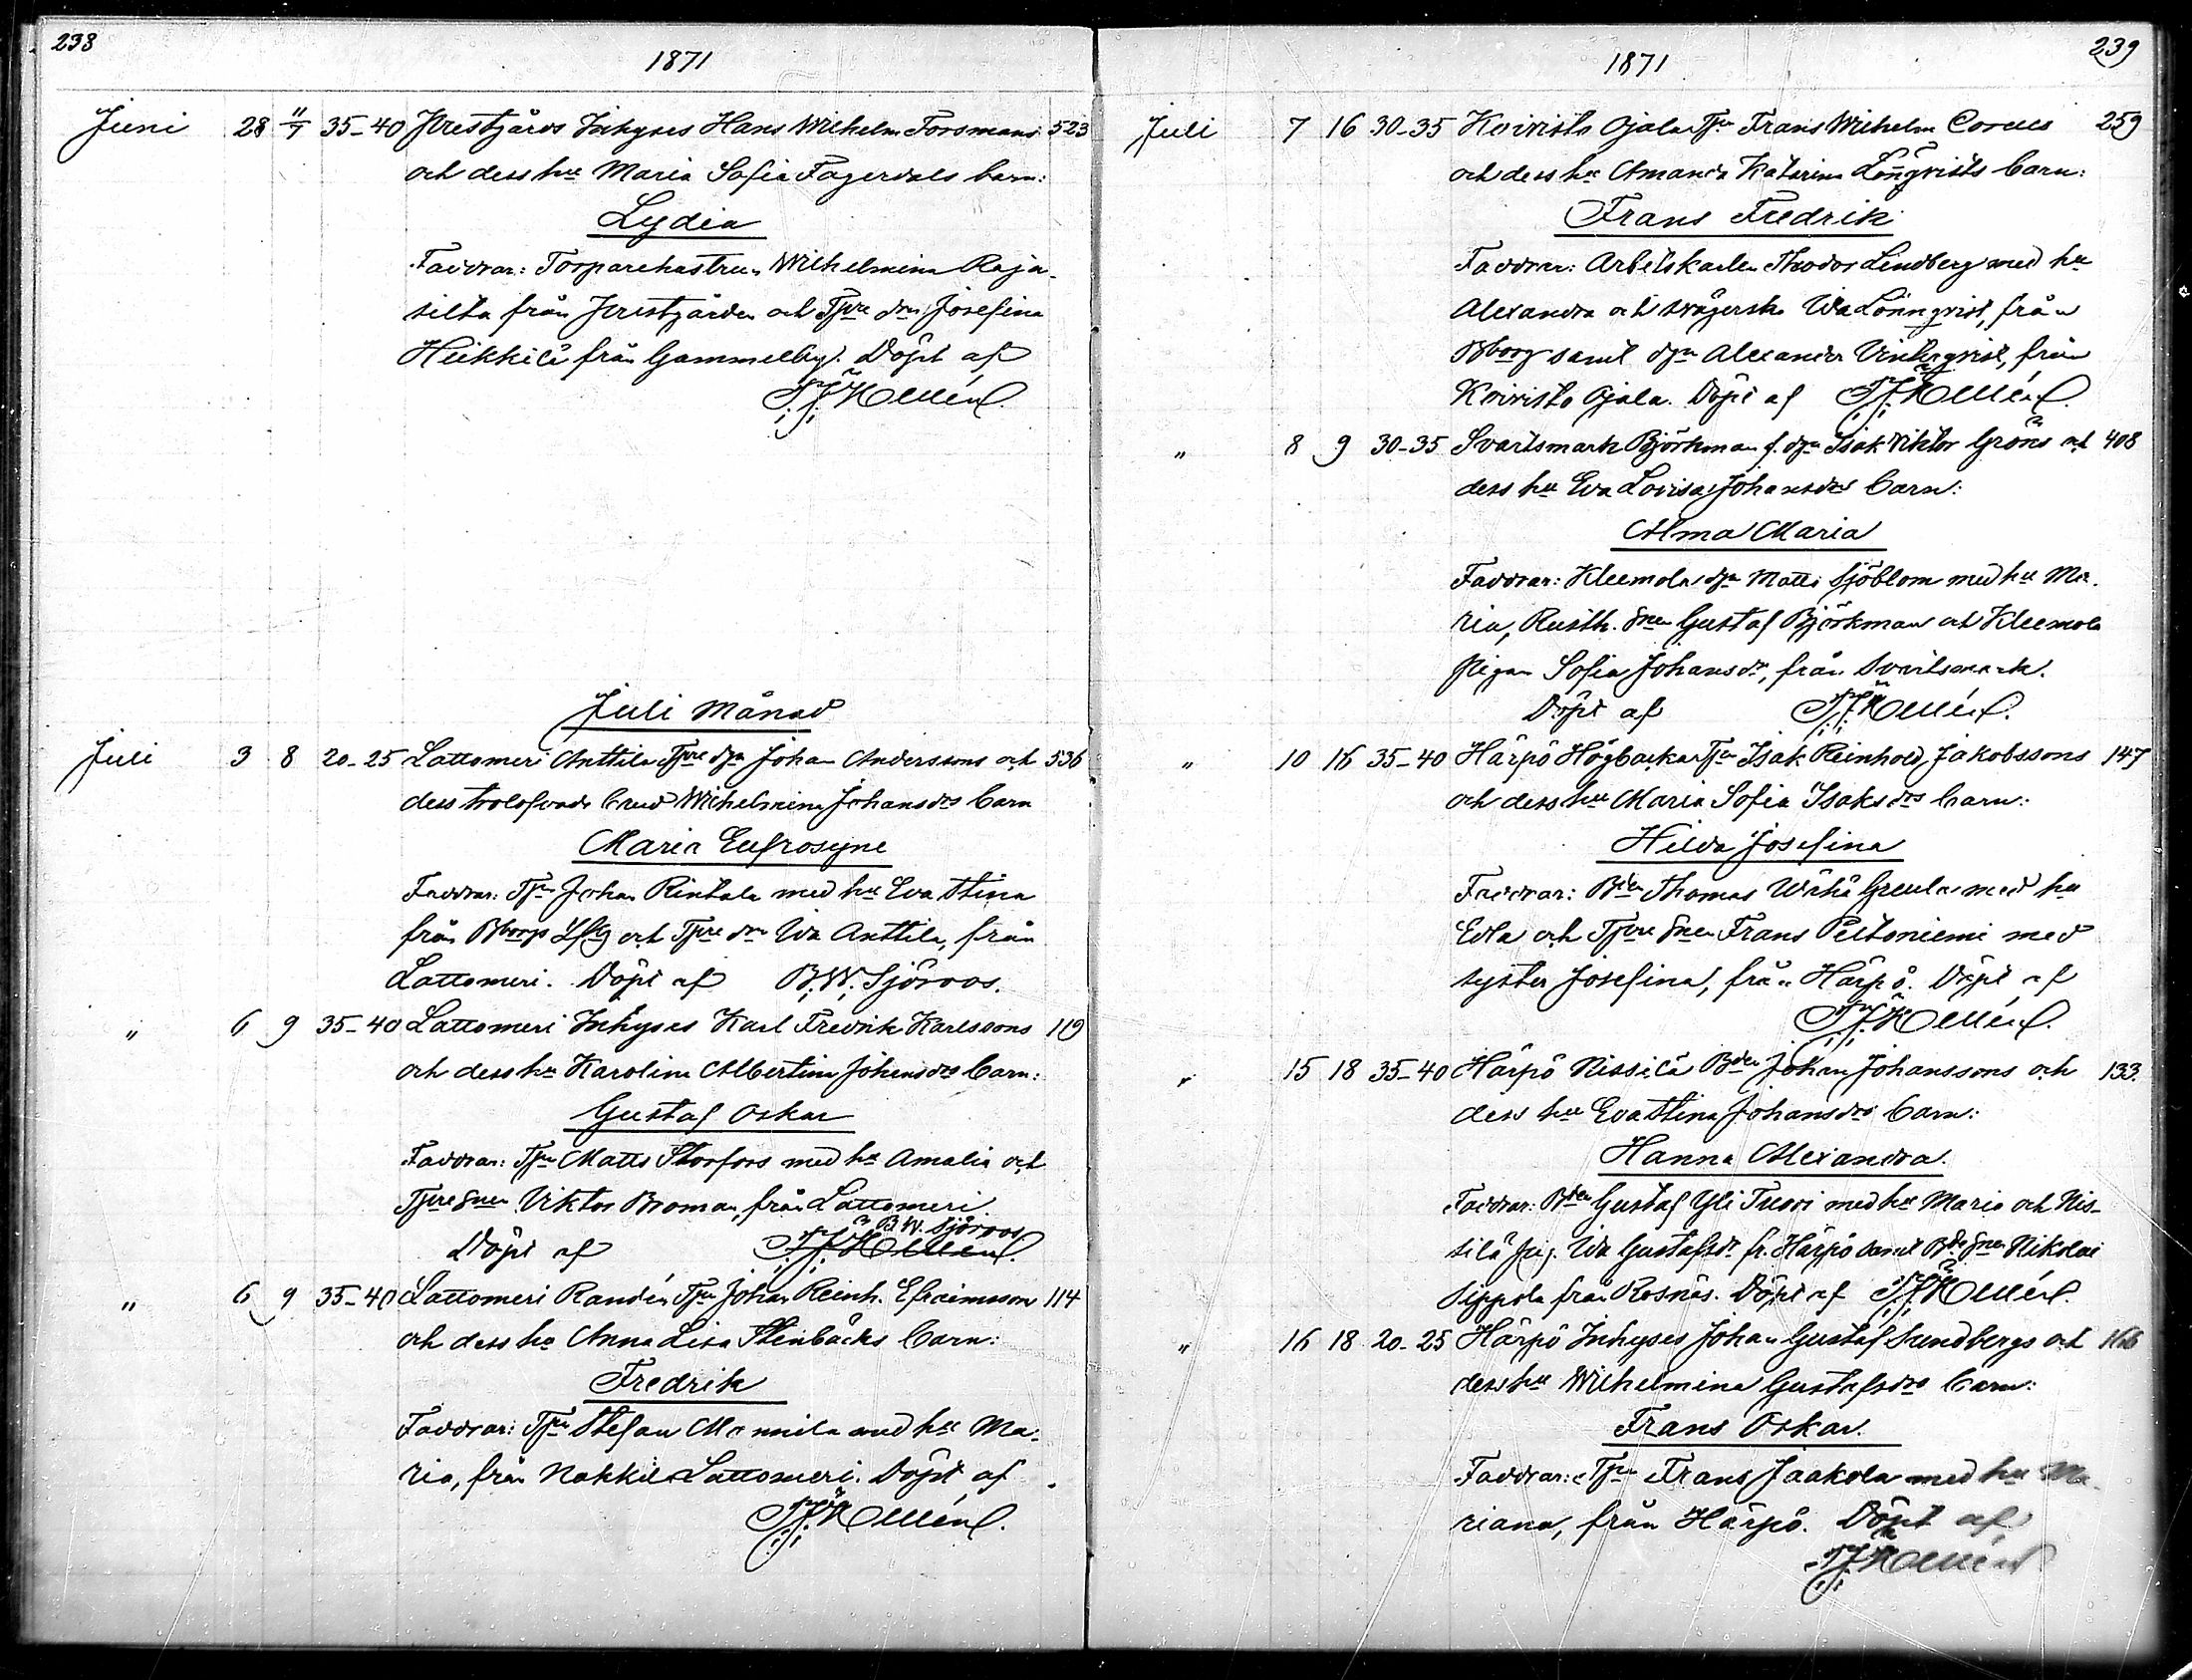 238
1871
Juni 28 11/7 35-40 Prestgårds Inhyses Hans Wilhelm Forsmans 523
och dess hu Maria Sofia Fagerdals barn:
Lydia
Faddrar: Torparehustrun Wilhelmina Raja-
silta från Prestgården och Tjre drn Josefina
Heikkilä från Gammelby. Döpt af
Juli Månad
Juli 3 8 20-25 Lattomeri Anttila Tjre dgn Johan Anderssons och 536
dess trolofvade brud Wilhelmina Johansdrs barn
Maria Eufrosyne
Faddrar: Tjrn Johan Rintala med hu Eva Stina
från Bborgs och Tjre drn Ida Anttila, från
Lattomeri. Döpt af B. W. Sjöroos.
" 6 9 35-40 Lattomeri Inhyses Karl Fredrik Karlssons 119
och dess hu Karolina Albertina Johansdrs barn:
Gustaf Oskar
Faddrar: Tjrn Matts Storfors med hu Amalia och
Tjre Snen Viktor Broman, från Lattomeri.
B W. Sjöroos
Döpt af
" 6 9 35-40 Lattomeri Randén Tjrn Johan Reinh. Efraimsson 114
och dess hu Anna Lisa Stenbäcks barn:
Fredrik
Faddrar: Tjrn Stefan Mannila med hu Ma-
ria, från Nakkila Lattomeri. Döpt af
239
1871
Juli 7 16 30-35 Koivisto Ojala Tjrn Frans Wilhelm 259
och dess hu Amanda Katarina Lönqvists barn:
Frans Fredrik
Faddrar: Arbetskarlen Thodor Lindberg med hu
Alexandra och svägersk. Ida Lönnqvist, från
Bborg samt dgn Alexander Vinterqvist, från
Koivisto Ojala. Döpt af
" 8 9 30-35 Svartsmark Björkman f. dgn Isak Viktor Gröns och 408
dess hu Eva Lovisa Johansdrs barn:
Alma Maria
Faddrar: Kleemola dgn Matts Sjöblom med hu Ma-
ria, Rusth. Snen Gustaf Björkman och Kleemola
Pigan Sofia Johansdr, från Svartsmark.
Döpt af
" 10 16 35-40 Härpö Högbacka Tjrn Isak Reinhold Jakobssons 147
och dess hu Maria Sofia Isaksdrs barn:
Hilda Josefina
Faddrar: Bden Thomas Wähä Greula med hu
Edla och Tjre Snen Frans Peltoniemi med
syster Josefina, från Härpö. Döpt af
" 15 18 35-40 Härpö Nissilä Bden Johan Johanssons och 133.
dess hu Eva Stina Johansdrs barn:
Hanna Alexandra.
Faddrar: Bden Gustaf Yli Tuori med hu Maria och Nis-
silä pig. Ida Gustafsdr fr. Härpö samt Bde Snen Nikolai
Sippola från Rosnäs. Döpt af
" 16 18 20-25 Härpö Inhyses Johan Gustaf Sundbergs och 166
dess hu Wilhelmina Gustafsdrs barn:
Frans Oskar.
Faddrar: Tjrn Frans Jaakola med hu Ma-
riana, från Härpö. Döpt af